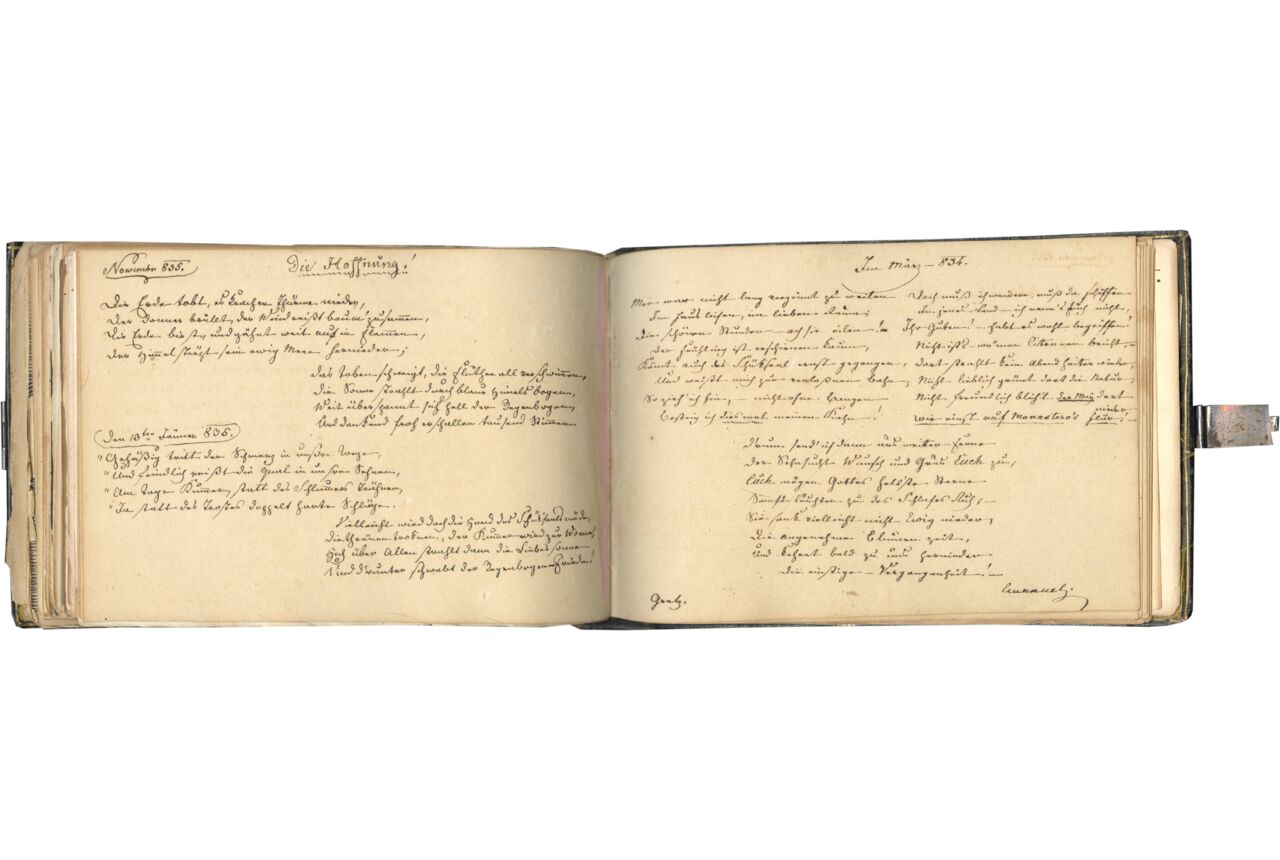 November 835.
Die Hoffnung!
Die Erde tobt, es krachen Thürme nieder,
Der Donner brüllt, der Wind reißt Bäum' zusammen,
Die Erde birst, und gähnet weit auf in Flammen,
Der Himmel stürzt sein ewig Meer hernieder;
Das Toben schweigt, die Fluthen all verschwimmen,
Die Sonne strahlt durch blaue Himmelsbogen,
Weit überspannt sich hell der Regenbogen,
Und dankend froh erschallen tausend Stimmen.
Den 13ten Jänner 835.
"Gehäßig tritt der Schmerz in unsre Wege,
"Und feindlich reißt die Qual in unsre Sehnen,
"Am Tage Kummer, statt des Schlummers Thränen,
"Ja statt des Trostes doppelt harte Schläge.
Vielleicht wird doch die Hand des Schiksals müde,
Die Thränen troknen, der Kummer wird zur Wonne,
Hoch über Allen strahlt dann die Liebessonne
Und d'runter schwebt der Regenbogen Friede!
Im März 834.
Mir war nicht lang vergönnt zu weilen
Im Haus, im lieben
Die schönen Stunden – ach sie eilen!
Der Frühling ist erschienen kaum,
Kömt auch des Schiksal ernst gegangen,
Und weißt mich zur verlaßnen Bahn;
So zieh ich hin, – nicht ohne
Besteig ich diesmal meinen Kahn!
Doch muß ich wandern, muß da schiffen
In jenes Land – ich nenn's Euch nicht,
Ihr Guten! – habt es wohl begriffen
Nicht ist's wo man Citronen bricht, –
Dort strahlt kein Abend heiter wieder,
Nicht lieblich grünt dort die Natur,
Nicht freundlich blüht der May dort nieder,
wie einst auf Monastero's Flur!
Drum send' ich dann aus weiter Ferne
Der Sehnsucht Wunsch und Grus Euch zu,
Euch mögen Gottes hellste Sterne
Sanft leuchten zu des Schlafes Ruh; –
Sie sank vielleicht nicht Ewig nieder,
Die angenehme Blumen Zeit,
Und kehret bald zu uns hernieder
Die einstige Vergangenheit! –
Emanuel
Gratz.